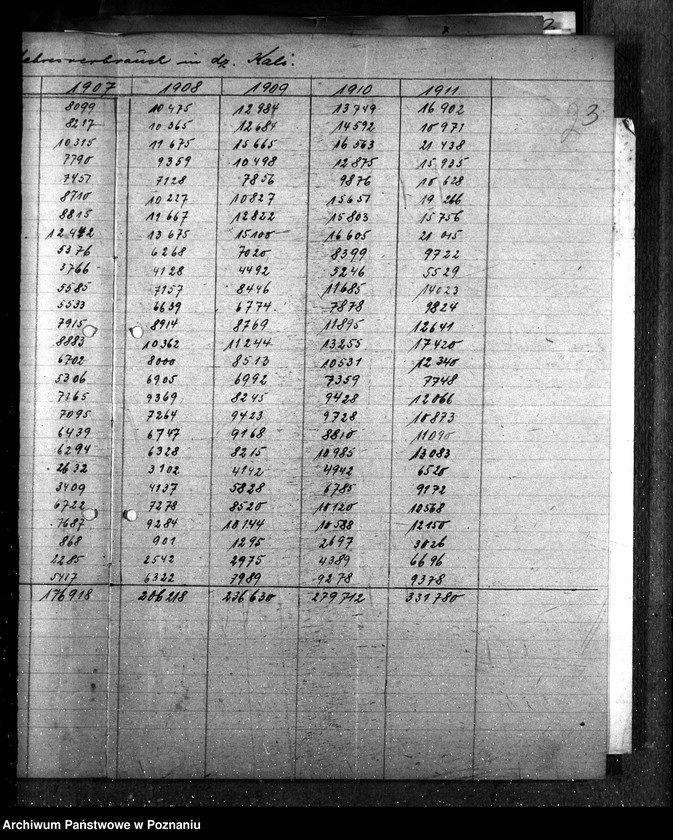 Jahresverbrauch in dz. Kali.
1907 1908 1909 1910 1911
23
8099 10475 12984 13749 16902
8217 10365 12684 14592 18971
10315 11675 15665 16563 21438
7790 9359 10498 12875 15935
7451 7128 7856 9876 10628
8710 10227 10827 15651 19266
8815 11667 12822 15803 15756
13675 15100 16605 21015
5376 6268 7020 8399 9722
3766 4128 4492 5246 5529
5585 7157 8446 11685 14023
5533 6639 6774 7878 9824
7915 8914 8769 11895 12641
8883 10362 11244 13255 17420
6702 8000 8513 10531 12340
5306 6905 6992 7359 7748
7265 9369 8245 9428 12066
7095 7264 9423 9728 10873
6439 6747 9168 8810 11090
6294 6328 8215 10985 13083
2632 3102 4142 4942 6520
3409 4137 5828 6785 9172
6722 7278 8520 10120 10568
7687 9284 10144 10588 12150
868 901 1295 2697 3026
2285 2542 2975 4389 6696
5417 6322 7989 9278 9378
176918 206218 236630 279712 331780
Archiwum Państwowe w Poznaniu